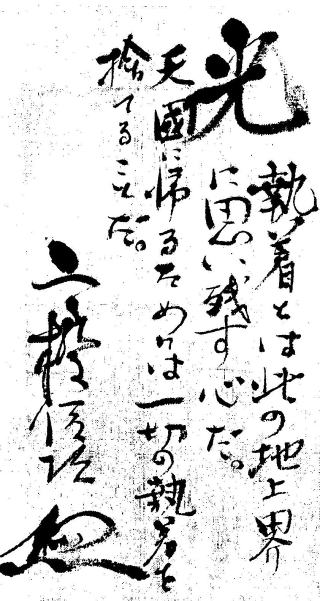 光
執着とは此の地上界
に思い残す心だ。
天國に帰るためには一切の執着を
捨てることだ。